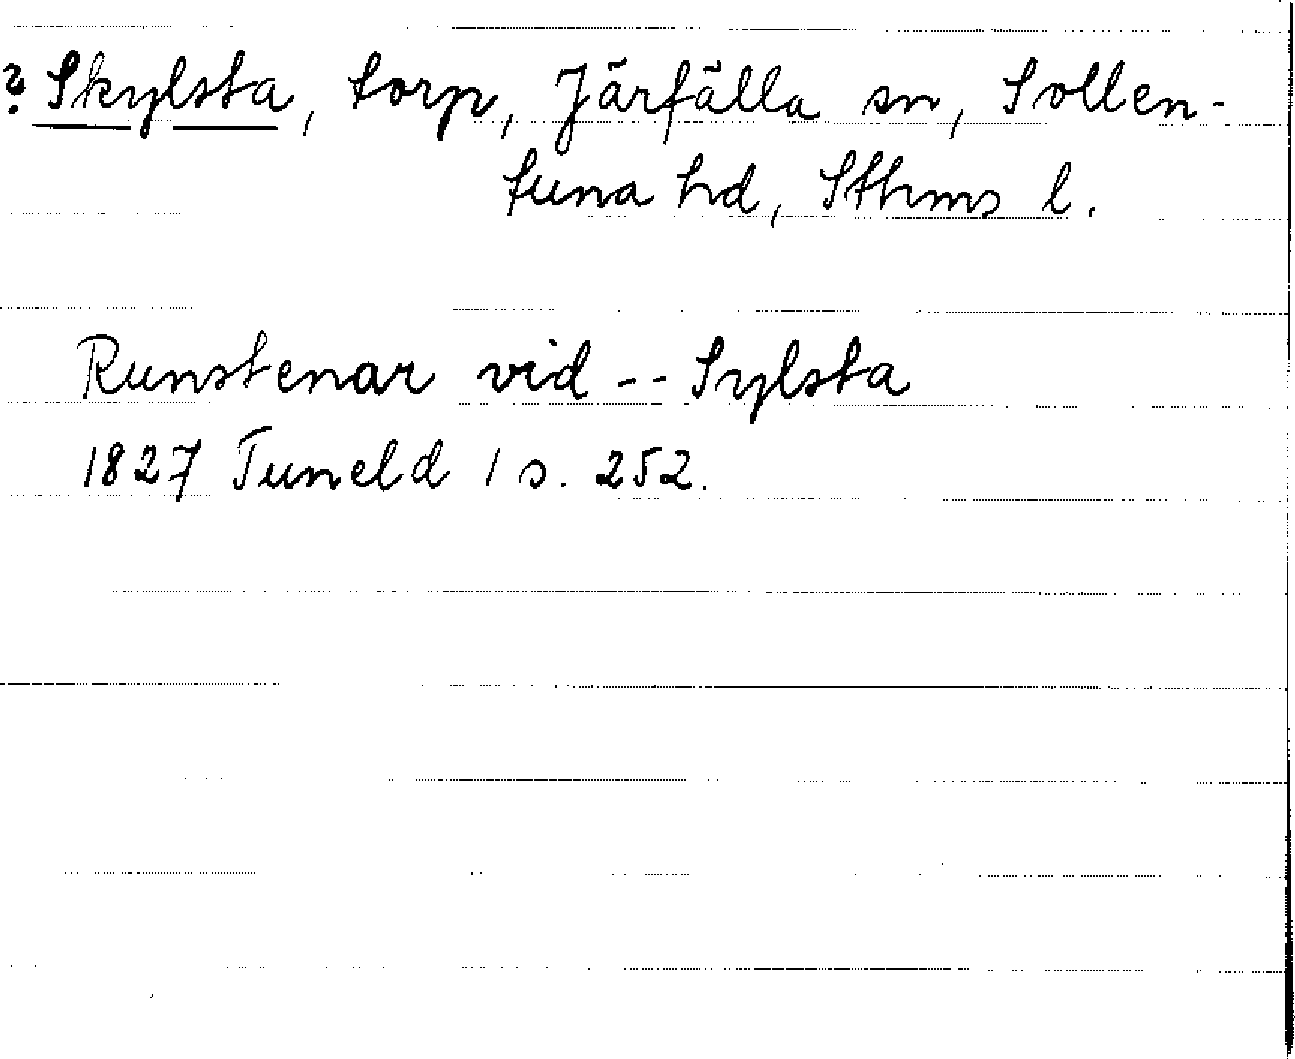 ? Skylsta, torp, Järfälla sn, Sollen-
tuna hd, Sthms l.
Runstenar vid -- Sylsta
1827 Tuneld 1 s. 252.